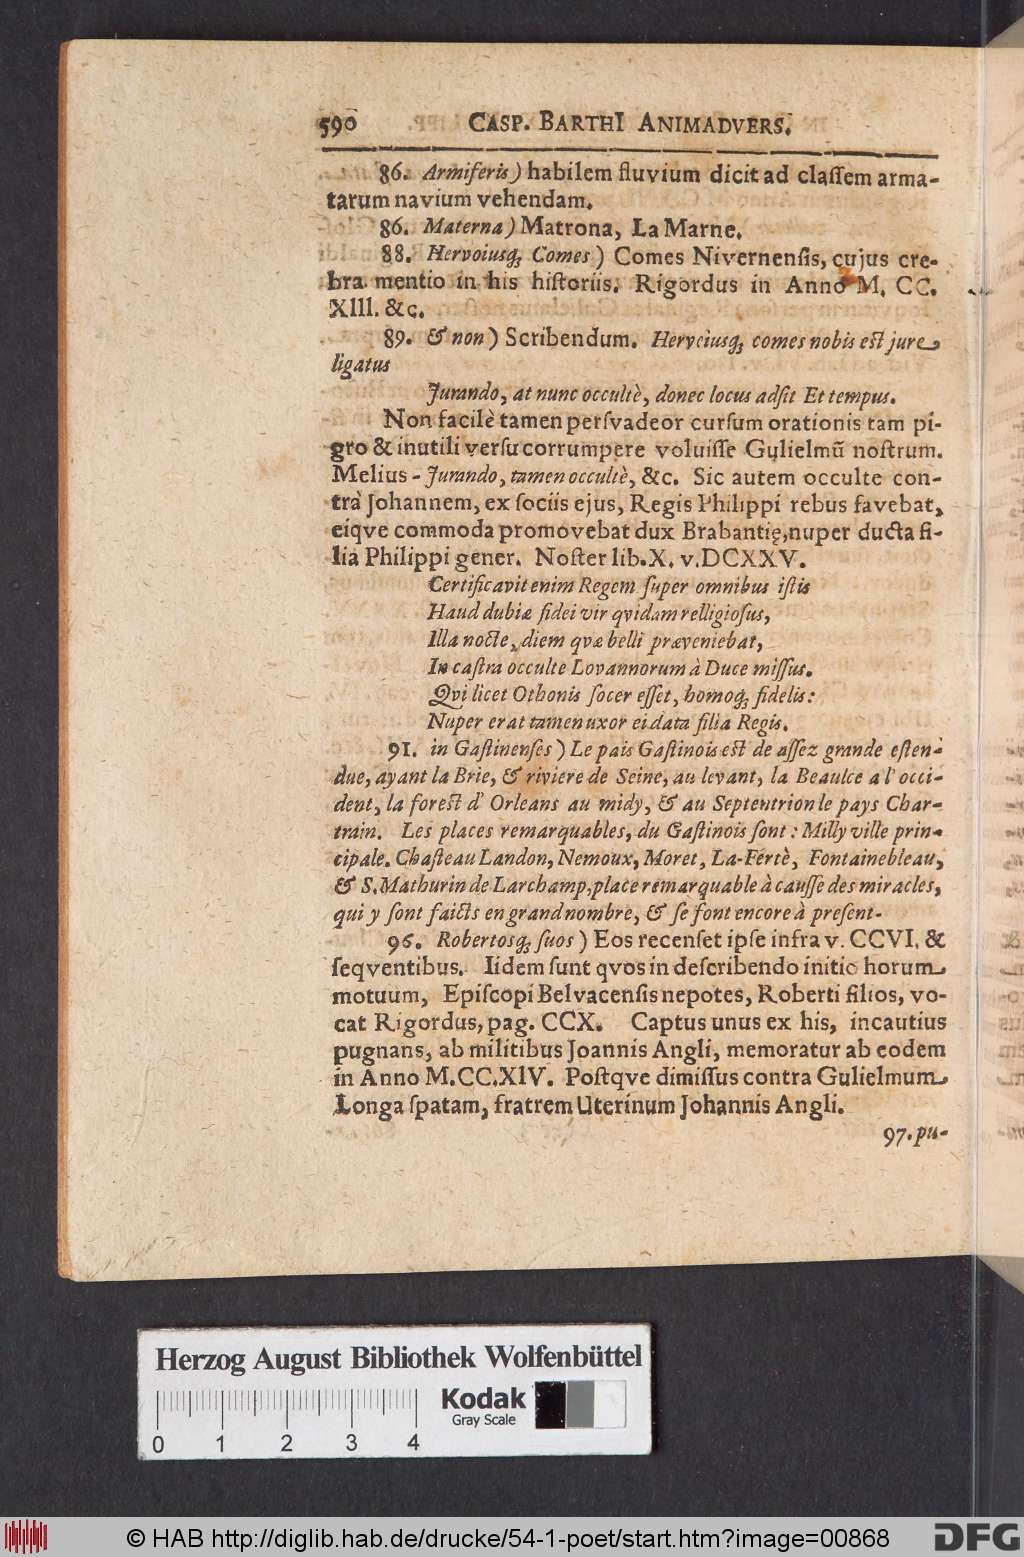 590 CASP. BARTHI ANIMADVERS.
86. Armiferis) habilem fluvium dicit ad claſſem arma-
tarum navium vehendam.
86. Materna) Matrona, La Marne.
88. Hervoiusq́; Comes) Comes Nivernenſis, cujus cre-
bra mentio in his hiſtoriis. Rigordus in Anno M. CC.
XIII. &c.
89. & non) Scribendum. Herveiusq́; comes nobis eſt jure
ligatus
Jurando, at nunc occultè, donec locus adſit Et tempus.
Non facilè tamen perſvadeor curſum orationis tam pi-
gro & inutili verſu corrumpere voluiſſe Gulielmũ noſtrum.
Melius - Jurando, tamen occultè, &c. Sic autem occulte con-
trà Johannem, ex ſociis ejus, Regis Philippi rebus favebat,
eiqve commoda promovebat dux Brabantię, nuper ducta fi-
lia Philippi gener. Noſter lib. X. v. DCXXV.
Certificavit enim Regem ſuper omnibus iſtis
Haud dubiæ fidei vir qvidam relligioſus,
Illa nocte, diem qvæ belli præveniebat,
In caſtra occulte Lovannorum à Duce miſſus.
Qvi licet Othonis ſocer eſſet, homoq́; fidelis:
Nuper erat tamen uxor ei data filia Regis.
91. in Gaſtinenſes) Le pais Gaſtinois eſt de aſſez grande eſten-
due, ayant la Brie, & riviere de Seine, au levant, la Beaulce a l' occi-
dent, la foreſt d' Orleans au midy, & au Septentrion le pays Char-
train. Les places remarquables, du Gaſtinois ſont: Milly ville prin-
cipale. Chaſteau Landon, Nemoux, Moret, La-Fertè, Fontainebleau,
& S. Mathurin de Larchamp, place remarquable à cauſſe des miracles,
qui y ſont faicts en grand nombre, & ſe font encore à preſent.
96. Robertosq́; ſuos) Eos recenſet ipſe infra v. CCVI. &
ſeqventibus. Iidem ſunt qvos in deſcribendo initio horum
motuum, Epiſcopi Belvacenſis nepotes, Roberti filios, vo-
cat Rigordus, pag. CCX. Captus unus ex his, incautius
pugnans, ab militibus Joannis Angli, memoratur ab eodem
in Anno M. CC. XIV. Poſtqve dimiſſus contra Gulielmum
Longa ſpatam, fratrem Uterinum Johannis Angli.
97. pu-
Herzog August Bibliothek Wolfenbüttel
Kodak
Gray Scale
0 1 2 3 4
© HAB http://diglib.hab.de/drucke/54-1-poet/start.htm?image=00868
DFG